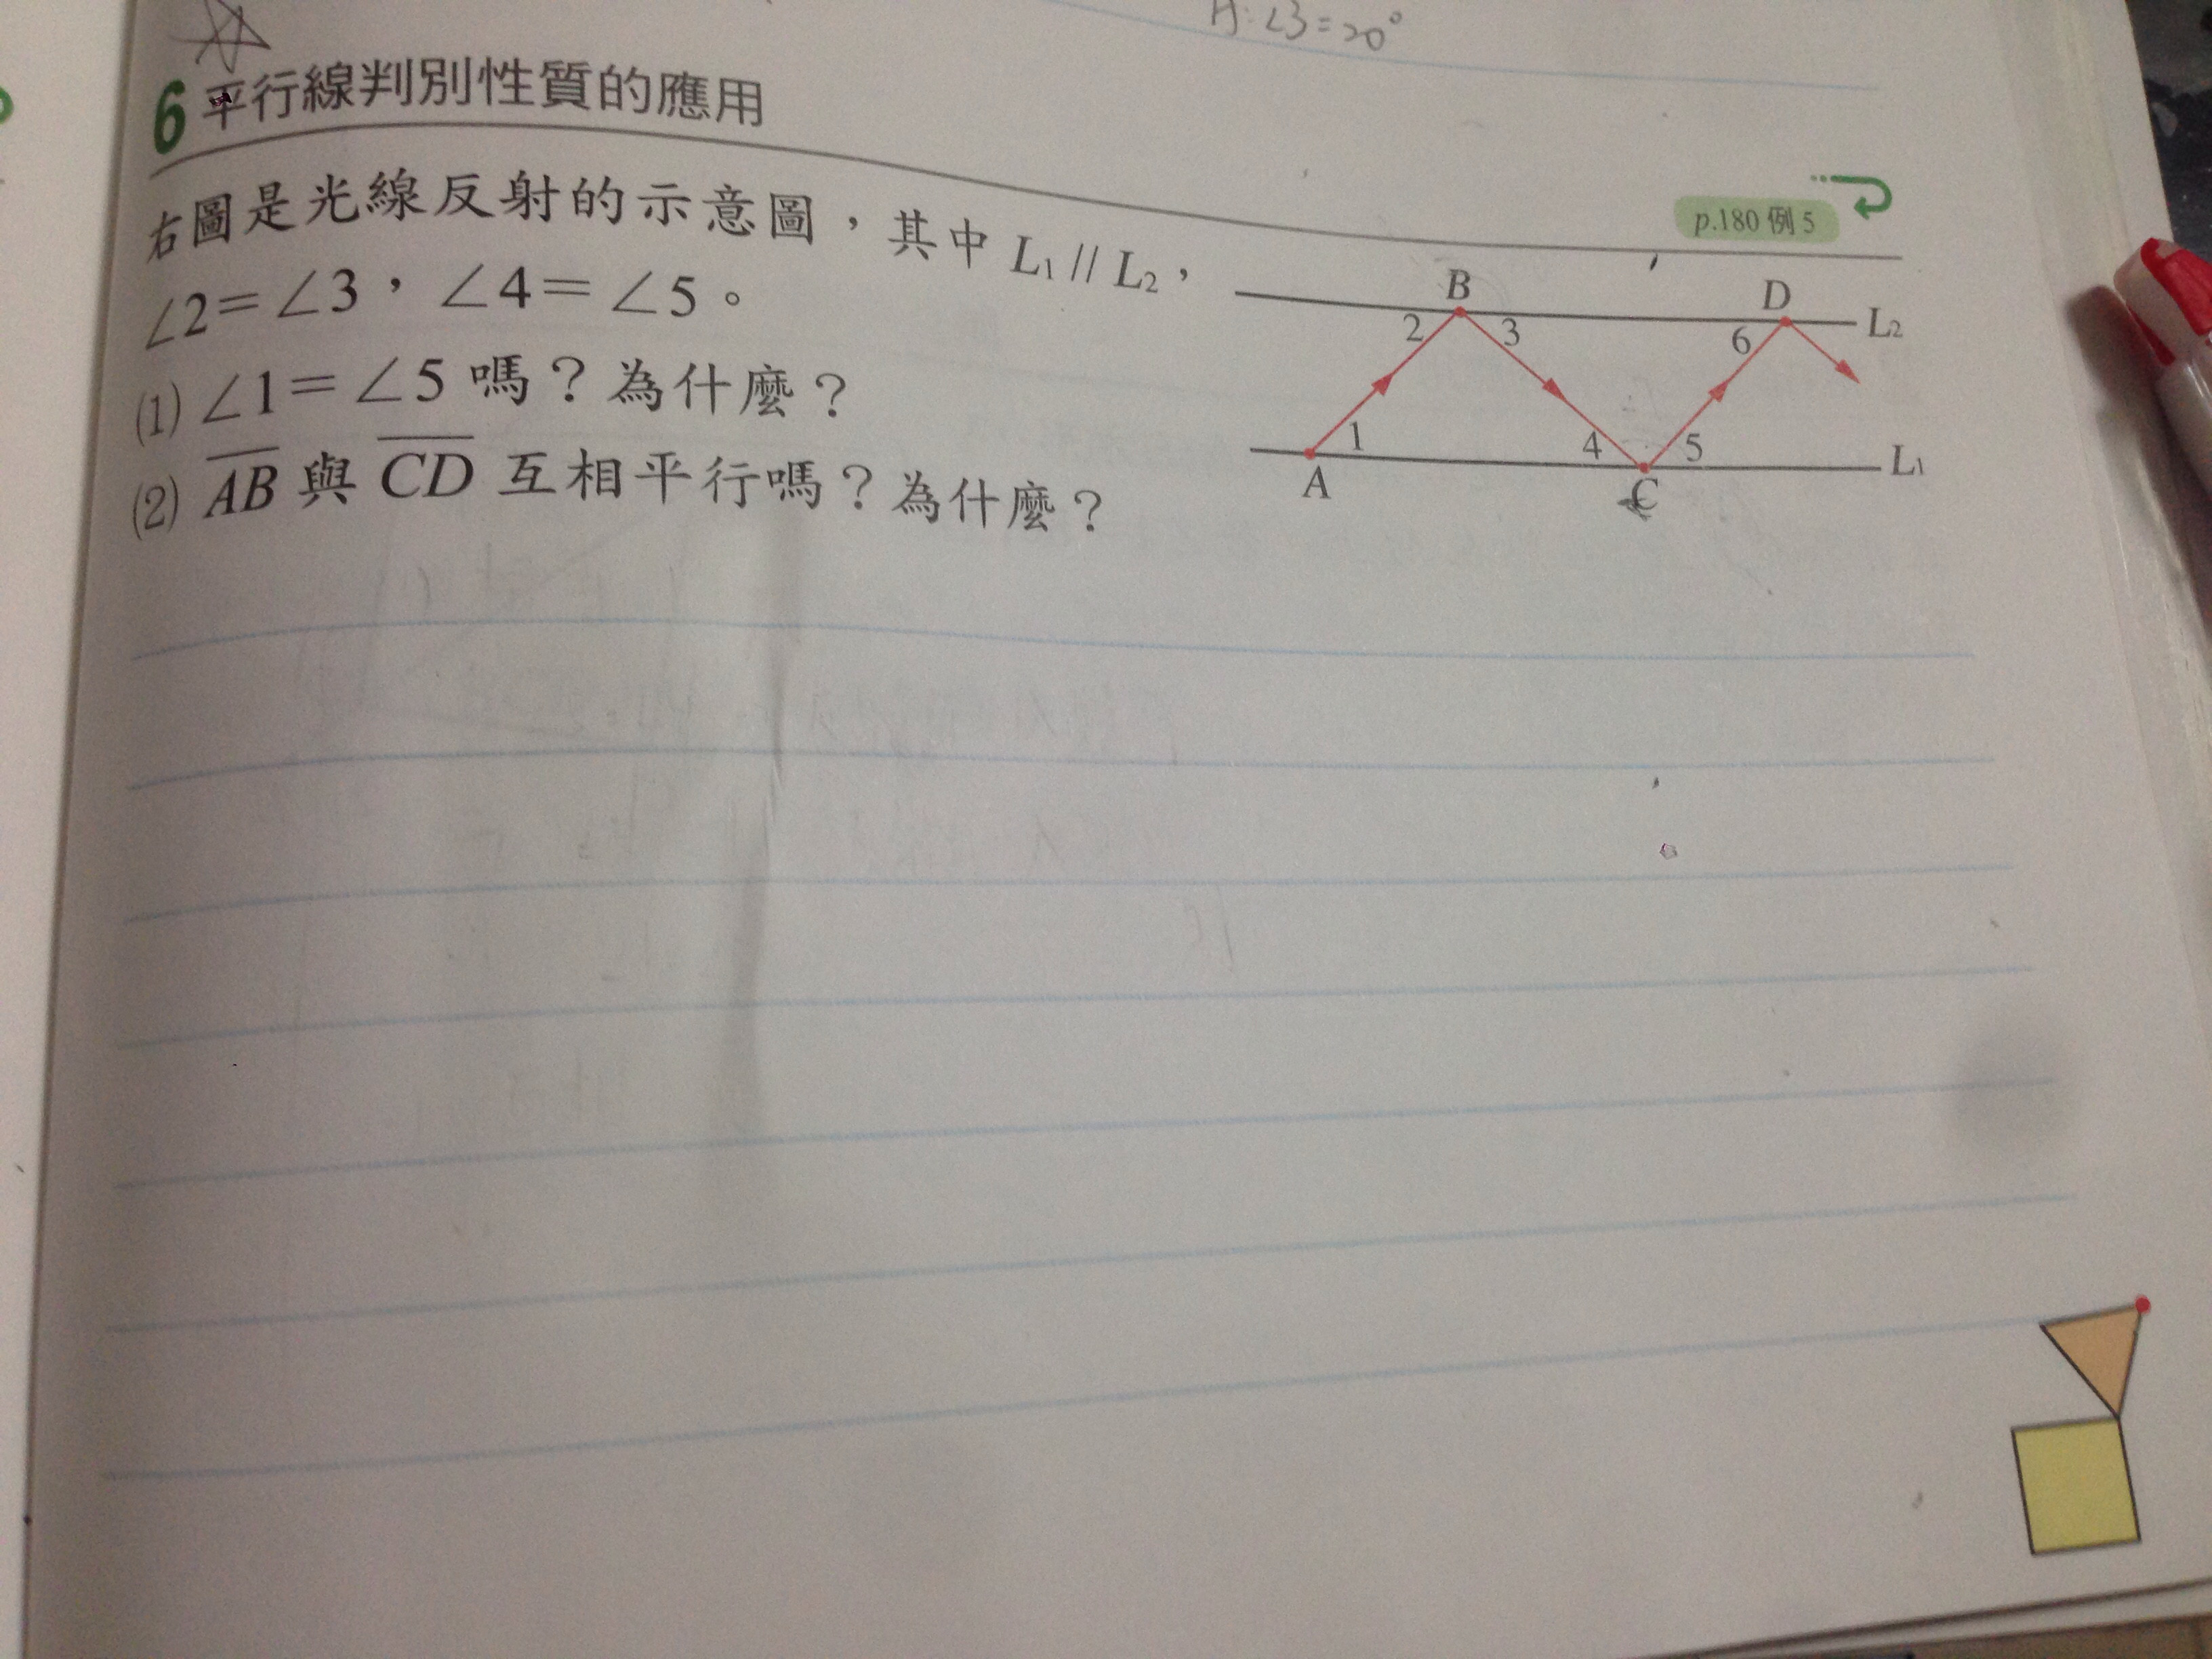 A:∠3=20°
6 平行線判別性質的應用
p.180 例 5
右圖是光線反射的示意圖，其中 L1 // L2，
∠2=∠3，∠4=∠5。
(1) ∠1=∠5 嗎？為什麼？
(2) AB 與 CD 互相平行嗎？為什麼？
B D
2 3 6 L2
1 4 5 L1
A C